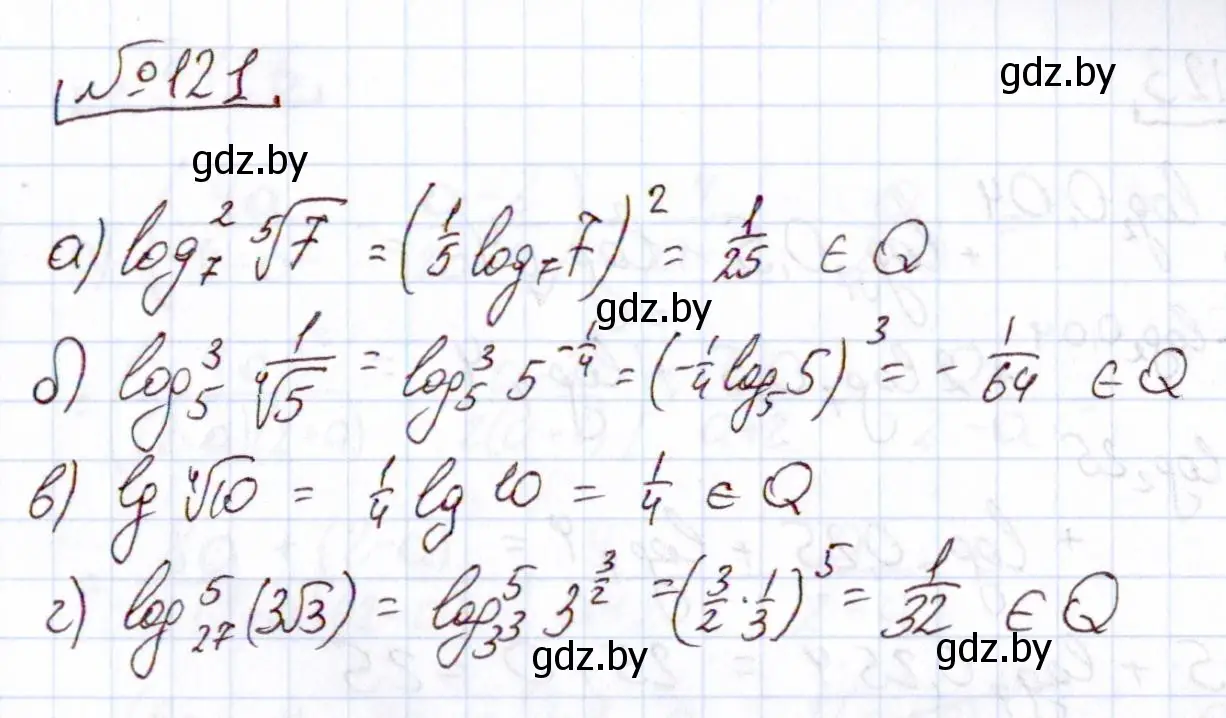 №121.
gdz.by
gdz.by
а) log₇² ⁵√7 = (1/5 log₇ 7)² = 1/25 ∈ Q
gdz.by
б) log₅³ 1/⁴√5 = log₅³ 5^(-1/4) = (-1/4 log₅ 5)³ = - 1/64 ∈ Q
в) lg ⁴√10 = 1/4 lg 10 = 1/4 ∈ Q
г) log₂₇⁵ (3√3) = log₃³⁵ 3^(3/2) = (3/2 · 1/3)⁵ = 1/32 ∈ Q
gdz.by
gdz.by